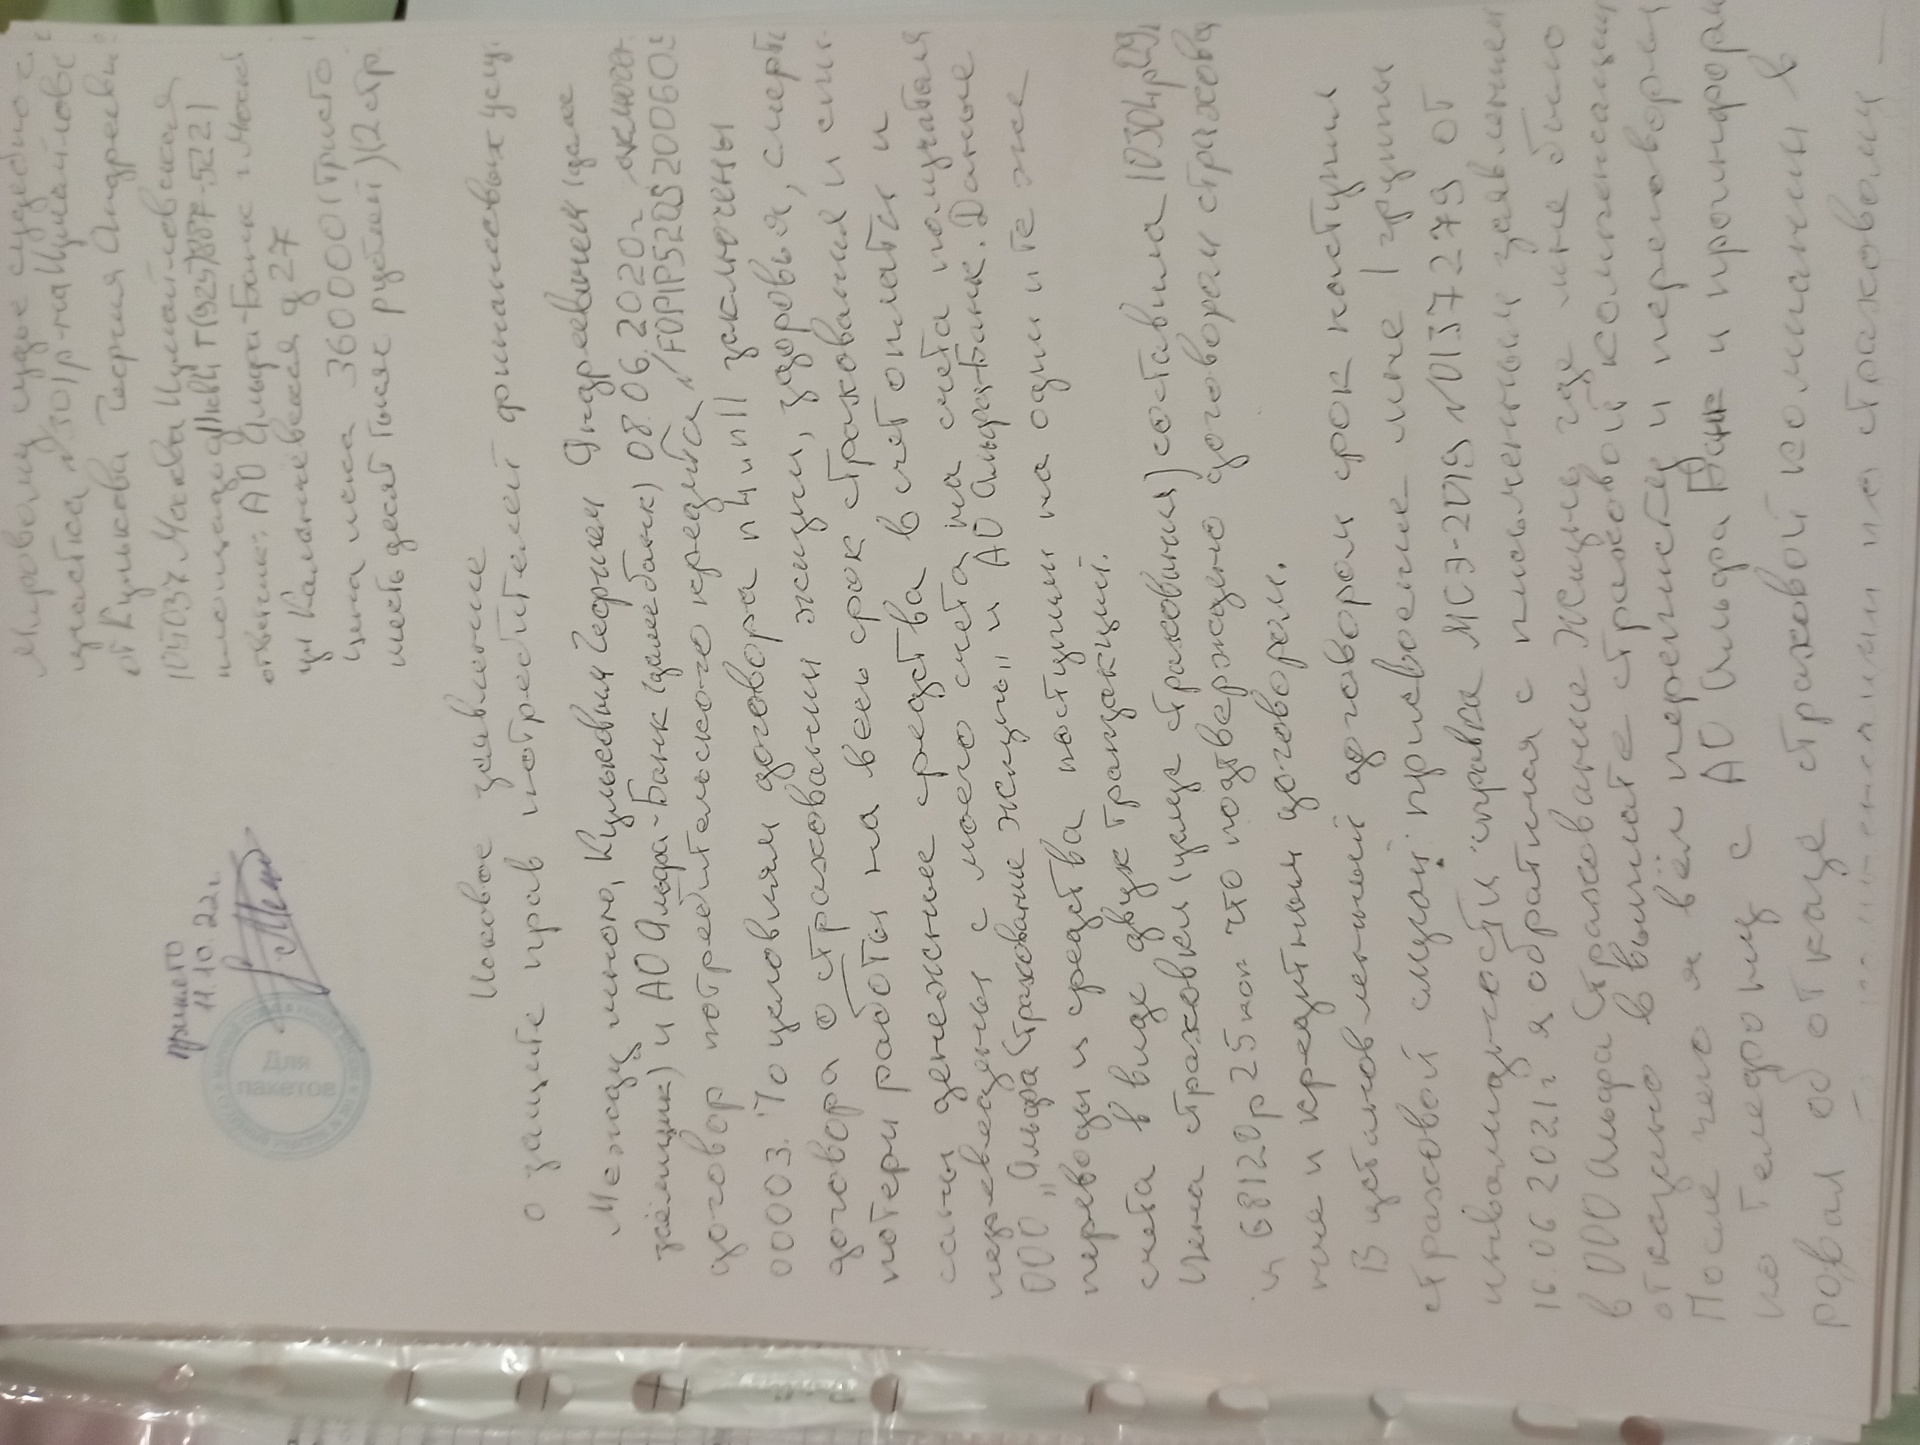 Мировому судье судебного
участка №301 р-на Измайлово
от Куликова Георгия Андреевича
105037 г. Москва Измайловская
площадь д11кв4 Т(925)7887-5221
ответчик: АО Альфа-Банк г. Моск
ул Каланчёвская д 27
цена иска 360000(триста
шестьдесят тысяч рублей)(2стр
принято
11.10.22г.
Для
пакетов
Исковое заявление
о защите прав потребителей финансовых усл.
Между мною, Куликовым Георгием Андреевичем (далее
заёмщик) и АО Альфа-Банк (далее банк) 08.06.2020г заключён
договор потребительского кредита №F0PIP520S200605
00003. По условиям договора п4 и п11 заключены
договора о страховании жизни, здоровья, смерти
потери работы на весь срок страхования и спи-
саны денежные средства в счет оплаты и
переведены с моего счета на счета получателя
ООО „Альфа Страхование жизнь" и АО Альфа-Банк. Данные
переводы и средства поступили на одни и те же
счета в виде двух транзакций.
Цена страховки (услуг страхования) составила 10304р29
и 68120р 25коп что подтверждено договорам страхова
ние и кредитным договорам.
В установленный договором срок наступил
страховой случай: присвоение мне I группы
инвалидности справка МСЭ-2019 №0137279 от
16.06.2021г я обратился с письменным заявлением
в ООО Альфа Страхование Жизнь где мне было
отказано в выплате страховой компенсации
После чего я вёл переписку и переговоры
по телефону с АО Альфа Банк и проинформи
ровал об отказе страховой компании в